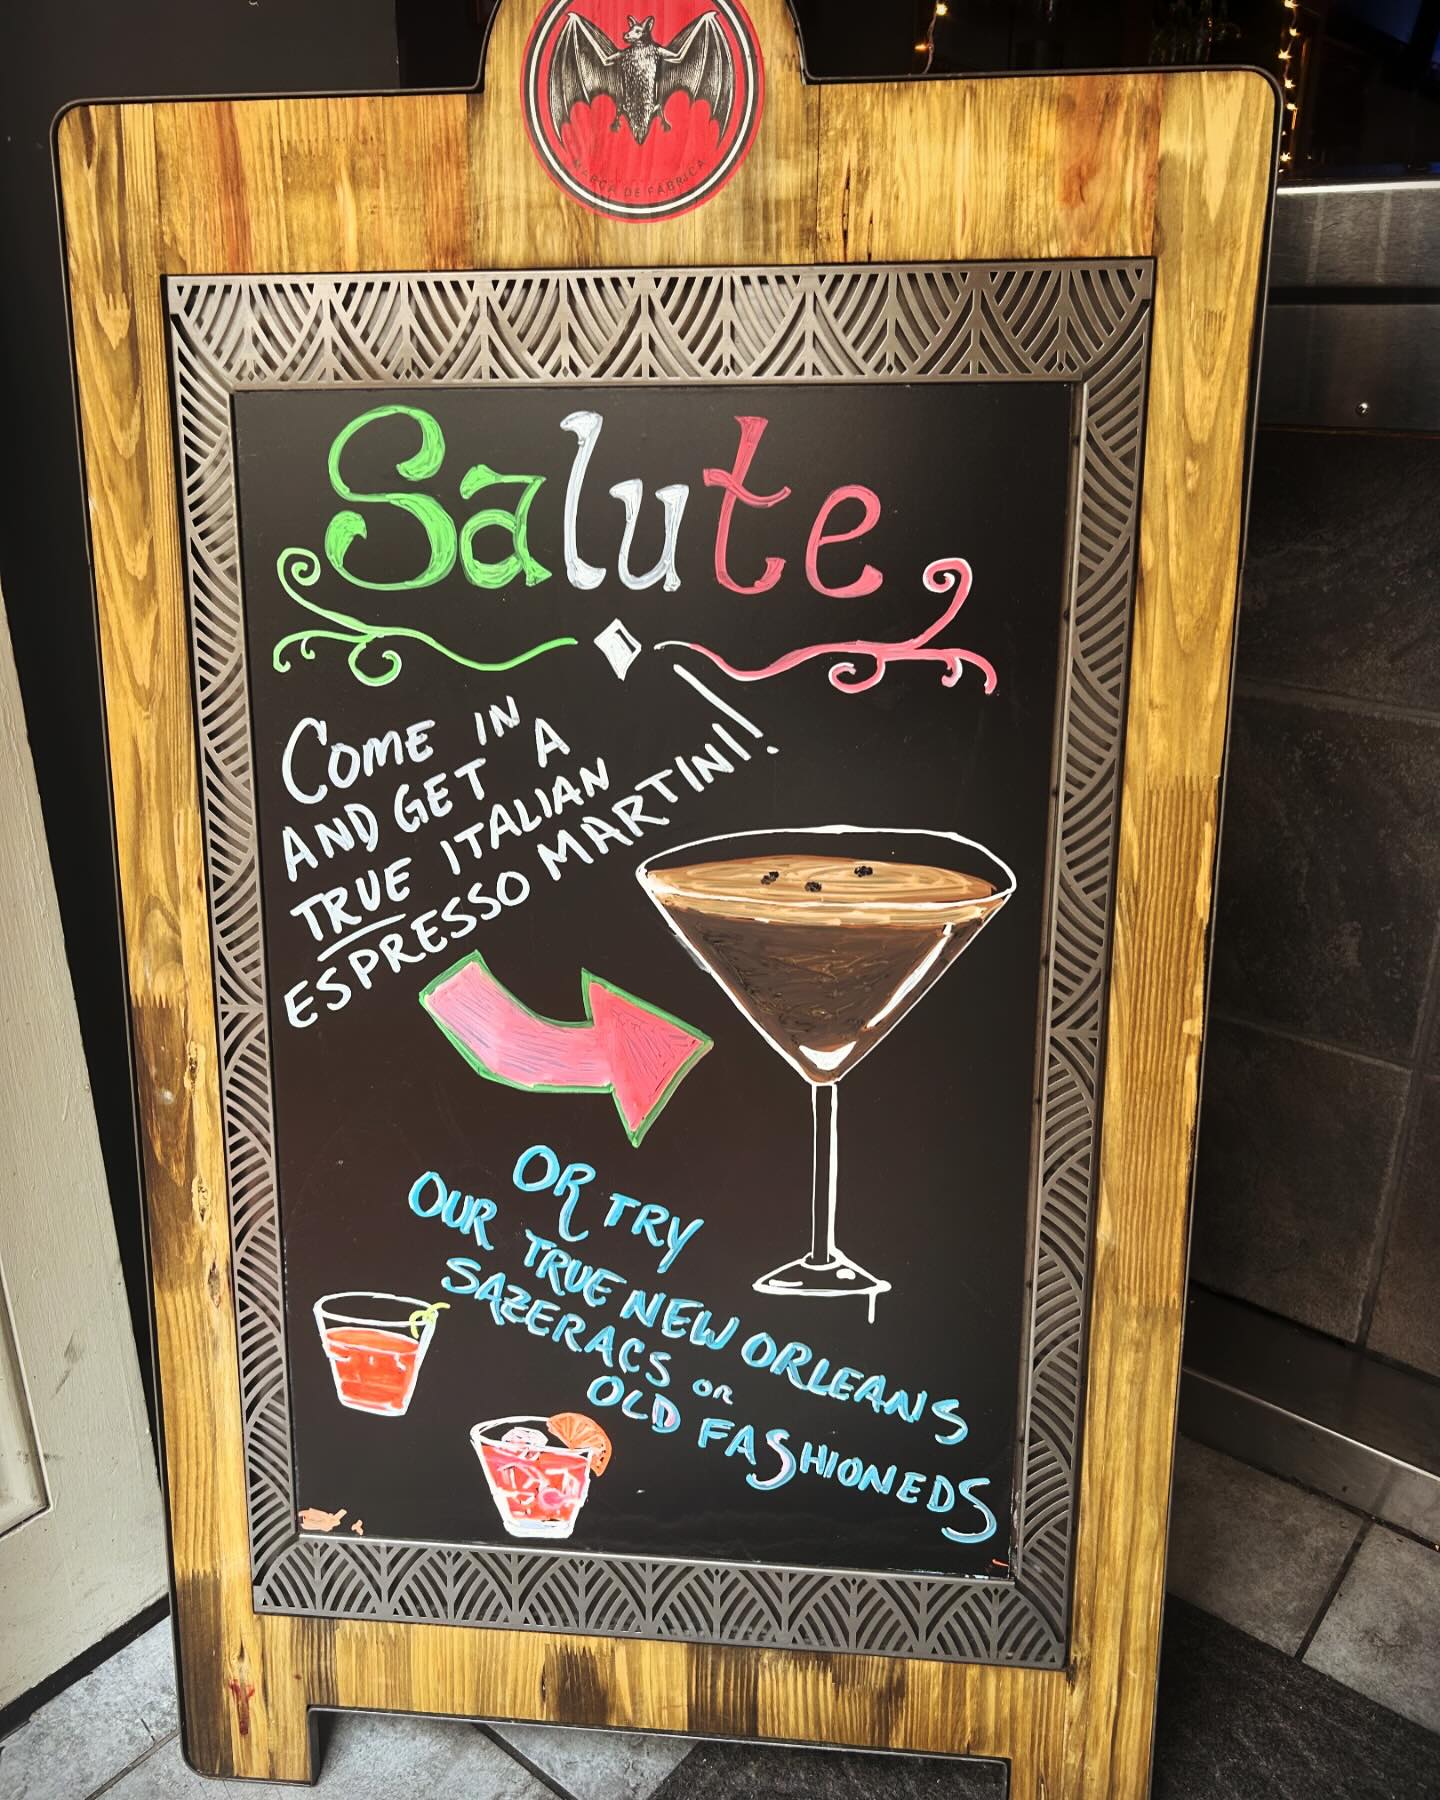 MARCA DE FÁBRICA
Salute
COME IN
AND GET A
TRUE ITALIAN
ESPRESSO MARTINI!
OR TRY
OUR TRUE NEW ORLEANS
SAZERACS OR
OLD FASHIONEDS